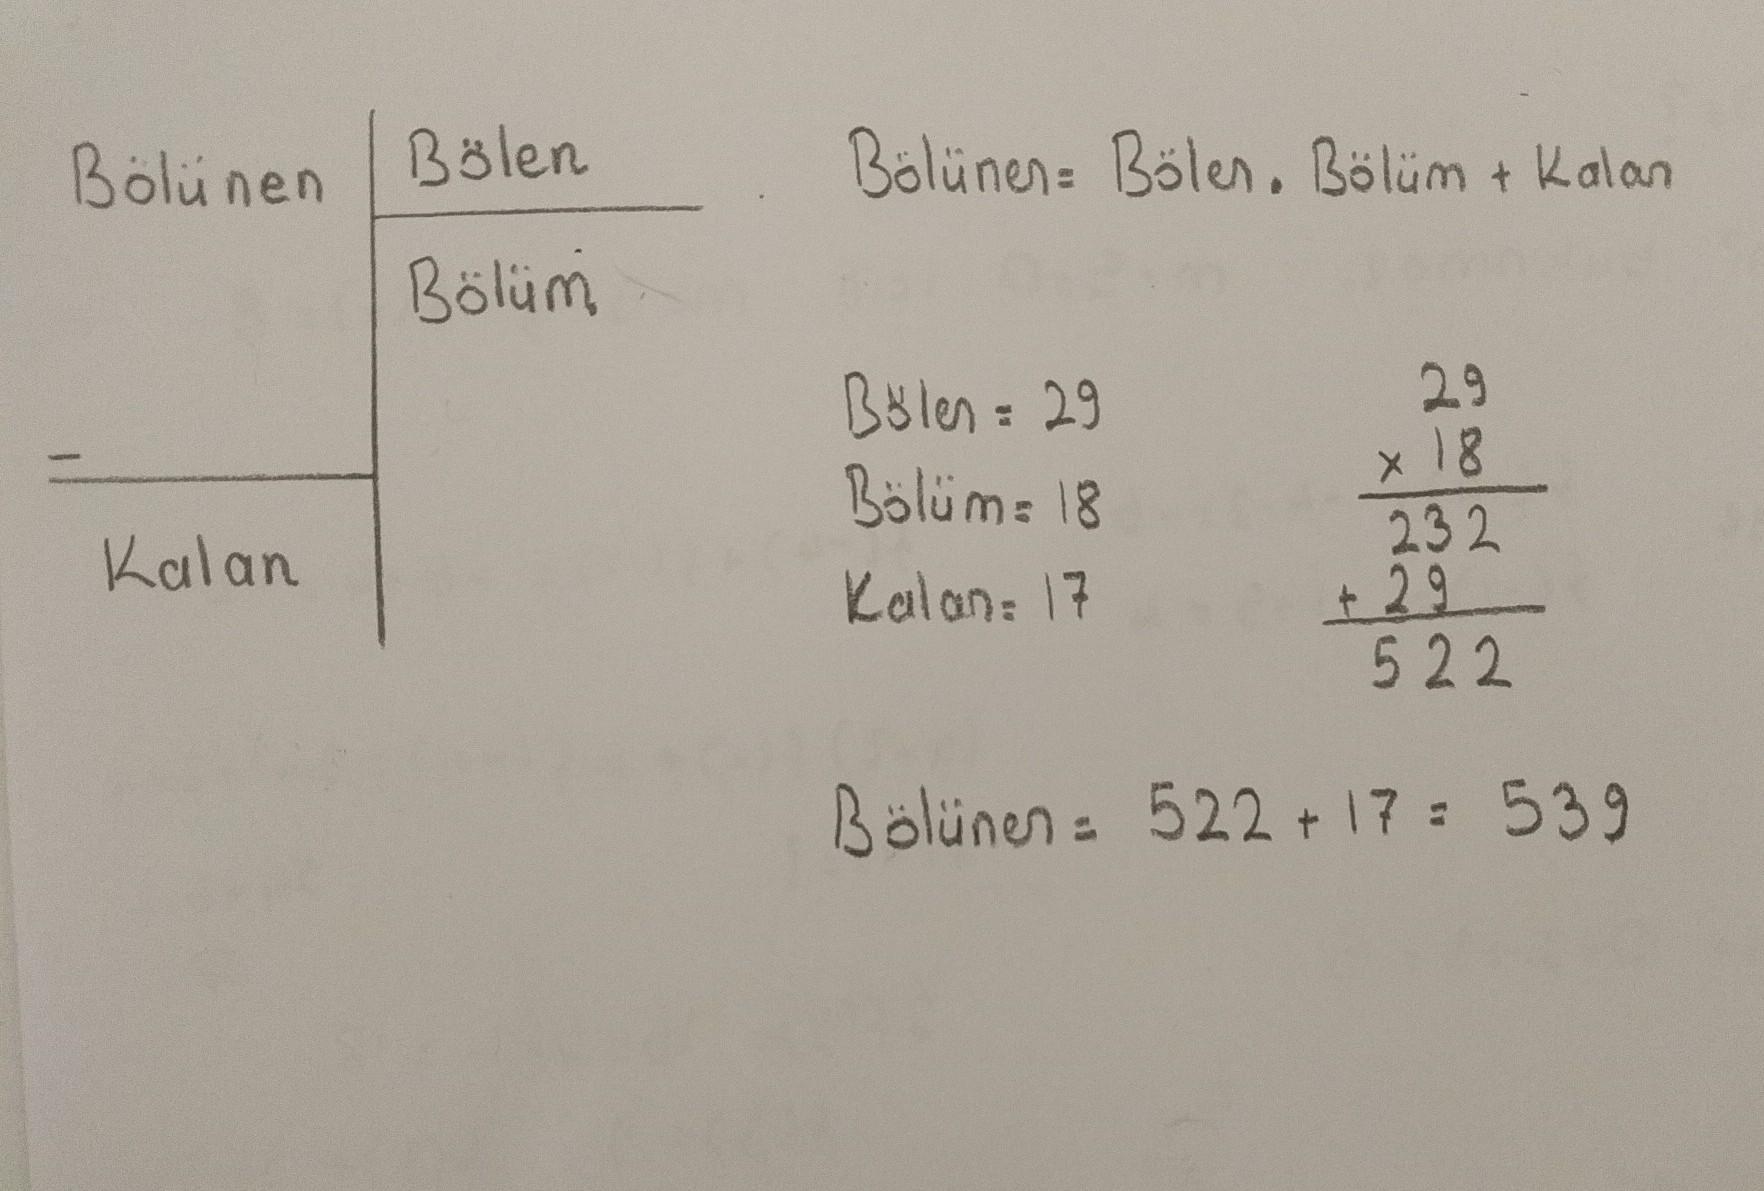 Bölünen Bölen
Bölüm
-
Kalan
Bölünen= Bölen . Bölüm + Kalan
Bölen = 29
Bölüm = 18
Kalan = 17
29
x 18
232
+ 29
522
Bölünen = 522 + 17 = 539